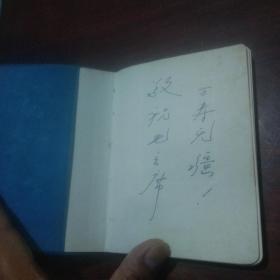 敬祝毛主席
万寿无疆！